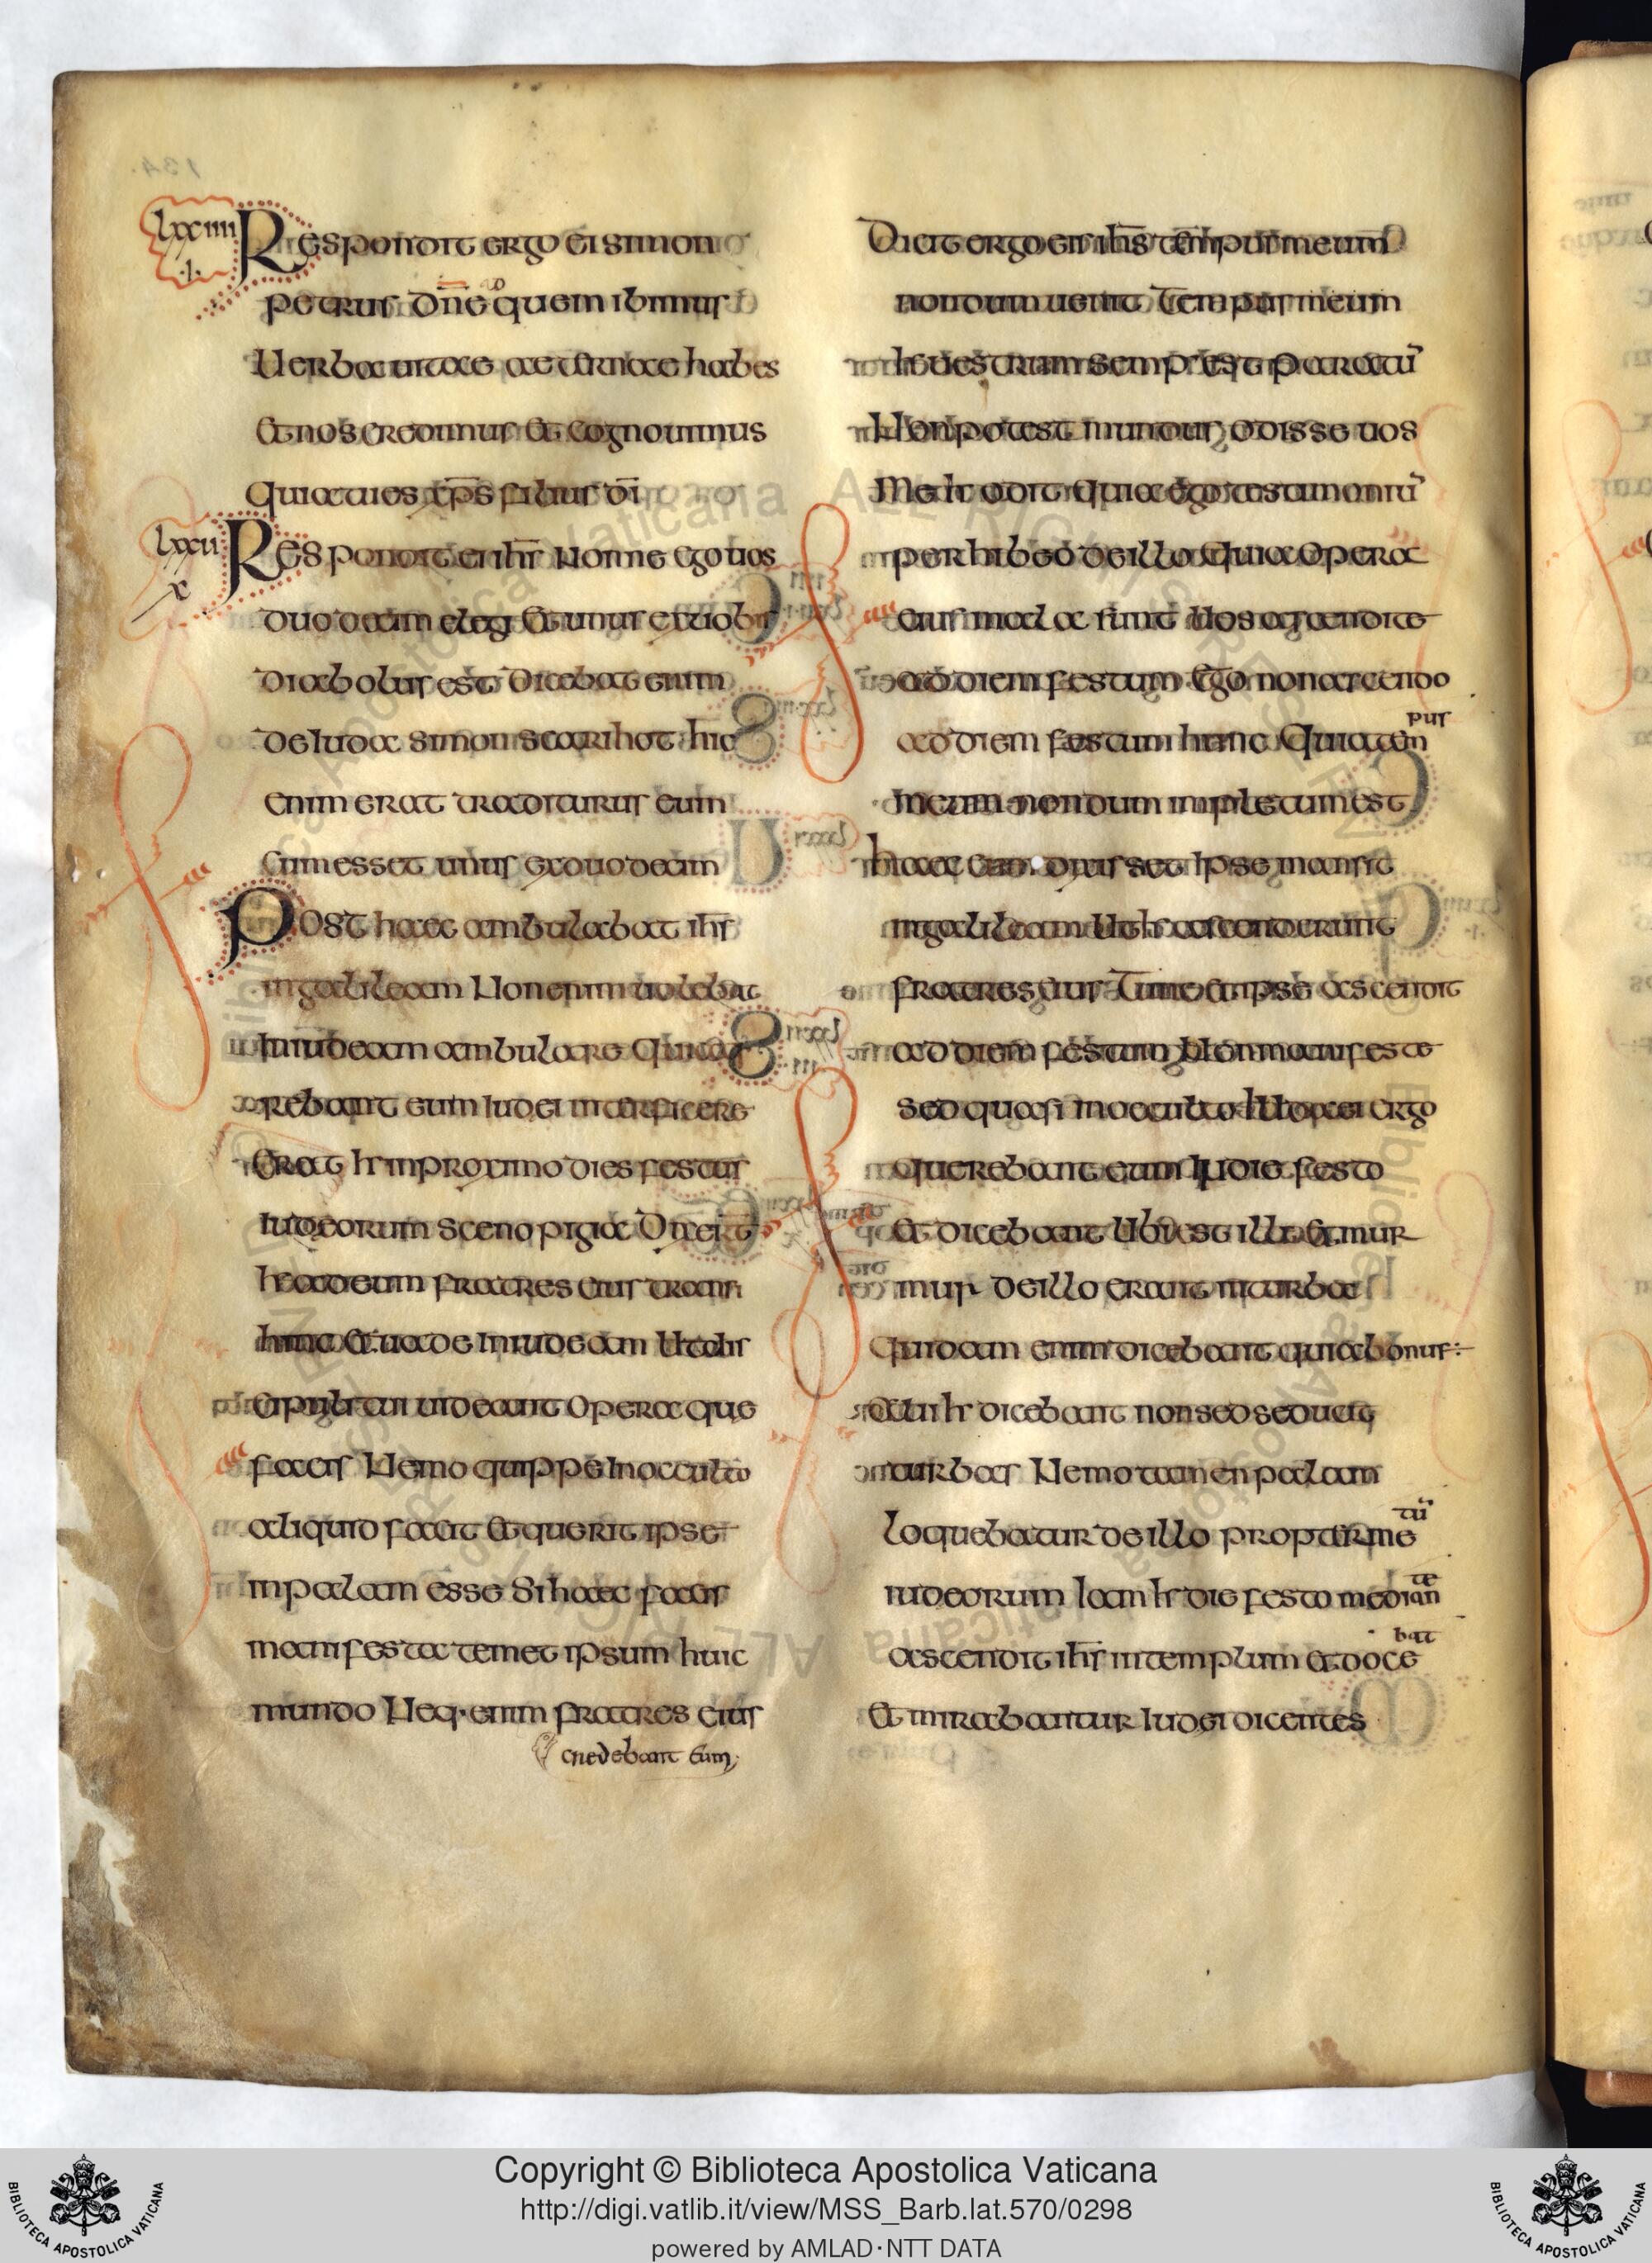 lxxiiii
·i·
Respondit ergo ei simon
petrus dn̄e ad quem ibimus
Uerba uitae aeternae habes
Et nos credimus et cognouimus
Quia tu es xp̄s filius dī
lxxu
x
Respondit eis ih̄s Nonne ego uos
duodecim elegi Et unus ex uobis
diabolus est Dicebat enim
de Iuda simon scarihot hic
enim erat traditurus eum
Cum esset unus ex duodecim
Post haec ambulabat ih̄s
in galileam Non enim uolebat
In iudeam ambulare Quia que
rebant eum Iudei interficere
Erat h in proximo dies festus
Iudeorum scenopigia Dixert̄
h ad eum fratres eius transi
hinc Et uade in iudeam Ut et dis
cipuli tui uideant opera que
facis Nemo quippe In occulto
aliquid facit Et querit ipse
in palam esse Si haec facis
manifesta temet ipsum huic
mundo Neq· enim fratres eius
credebant Eum;
Dicit ergo eis ih̄s tempus meum
nondum uenit Tempus meum
h uestrum semp est paratū
Non potest mundus odisse uos
Me h odit Quia ego testimoniū
perhibeo de illo Quia opera
eius mala sunt Uos ascendite
ad diem festum Ego non ascendo
ad diem festum hunc Quia tem
pus
meum nondum impletum est
haec cum dixisset Ipse mansit
in galileam Ut h ascenderunt
fratres eius Tunc et ipse ascendit
ad diem festum Non manifeste
sed quasi in occulto Iudaei ergo
querebant eum In die festo
Et dicebant Ubi est ille Et mur
mur de illo erant in turba
Quidam enim dicebant quia bonus:-
Alii h dicebant non sed seducit
turbas Nemo tamen palam
loquebatur de illo propter me
tū
iudeorum Iam h die festo median
te
ascendit ih̄s in templum Et doce
bat
Et mirabantur Iudei dicentes
Copyright © Biblioteca Apostolica Vaticana
http://digi.vatlib.it/view/MSS_Barb.lat.570/0298
powered by AMLAD·NTT DATA
BIBLIOTECA APOSTOLICA VATICANA
BIBLIOTECA APOSTOLICA VATICANA